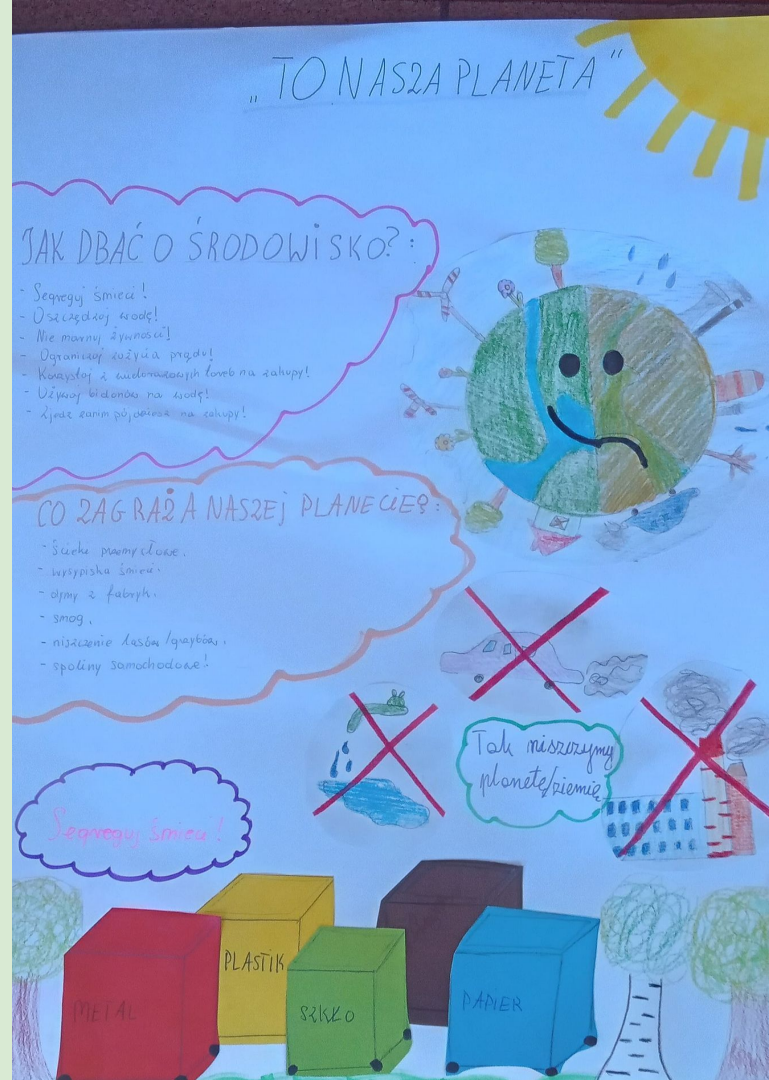 „TO NASZA PLANETA"
JAK DBAĆ O ŚRODOWISKO?:
- Segreguj śmieci!
- Oszczędzaj wodę!
- Nie marnuj żywności!
- Ograniczaj zużycia prądu!
- Korzystaj z wielorazowych toreb na zakupy!
- Używaj bidonów na wodę!
- Zjedz zanim pójdziesz na zakupy!
CO ZAGRAŻA NASZEJ PLANECIE?:
- Ścieki przemysłowe.
- wysypiska śmieci.
- dymy z fabryk.
- smog.
- niszczenie lasów/grzybów.
- spaliny samochodowe!
Tak niszczymy
planetę/ziemię
Segreguj śmieci!
PLASTIK
METAL
SZKŁO
PAPIER